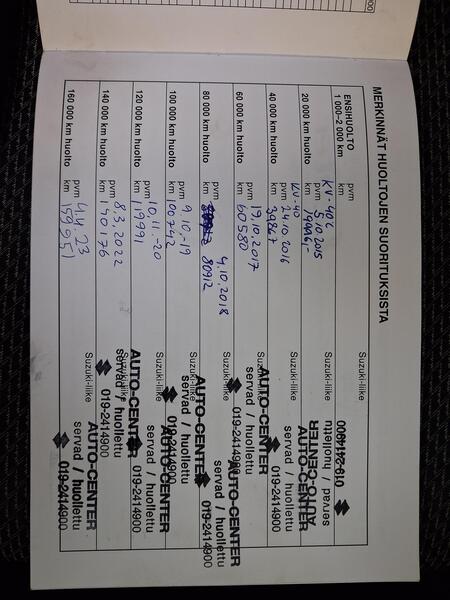 MERKINNÄT HUOLTOJEN SUORITUKSISTA
ENSIHUOLTO
1 000–2 000 km
pvm
km
Suzuki-liike
20 000 km huolto
KV-40t
pvm 5.10.2015
km
Suzuki-liike
AUTO-CENTER
servad / huollettu
019-2414900
40 000 km huolto
KV-40
pvm 24.10 2016
km 39867
Suzuki-liike
AUTO-CENTER
servad / huollettu
019-2414900
60 000 km huolto
pvm 19.10.2017
km 60580
Suzuki-liike
AUTO-CENTER
servad / huollettu
019-2414900
80 000 km huolto
pvm 4.10.2018
km 80912
Suzuki-liike
AUTO-CENTER
servad / huollettu
019-2414900
100 000 km huolto
pvm 9.10.-19
km 100742
Suzuki-liike
AUTO-CENTER
servad / huollettu
019-2414900
120 000 km huolto
pvm 10.11.-20
km 119991
Suzuki-liike
AUTO-CENTER
servad / huollettu
019-2414900
140 000 km huolto
pvm 8.3.2022
km 140176
Suzuki-liike
AUTO-CENTER
servad / huollettu
019-2414900
160 000 km huolto
pvm 4.4.23
km
Suzuki-liike
AUTO-CENTER
servad / huollettu
019-2414900